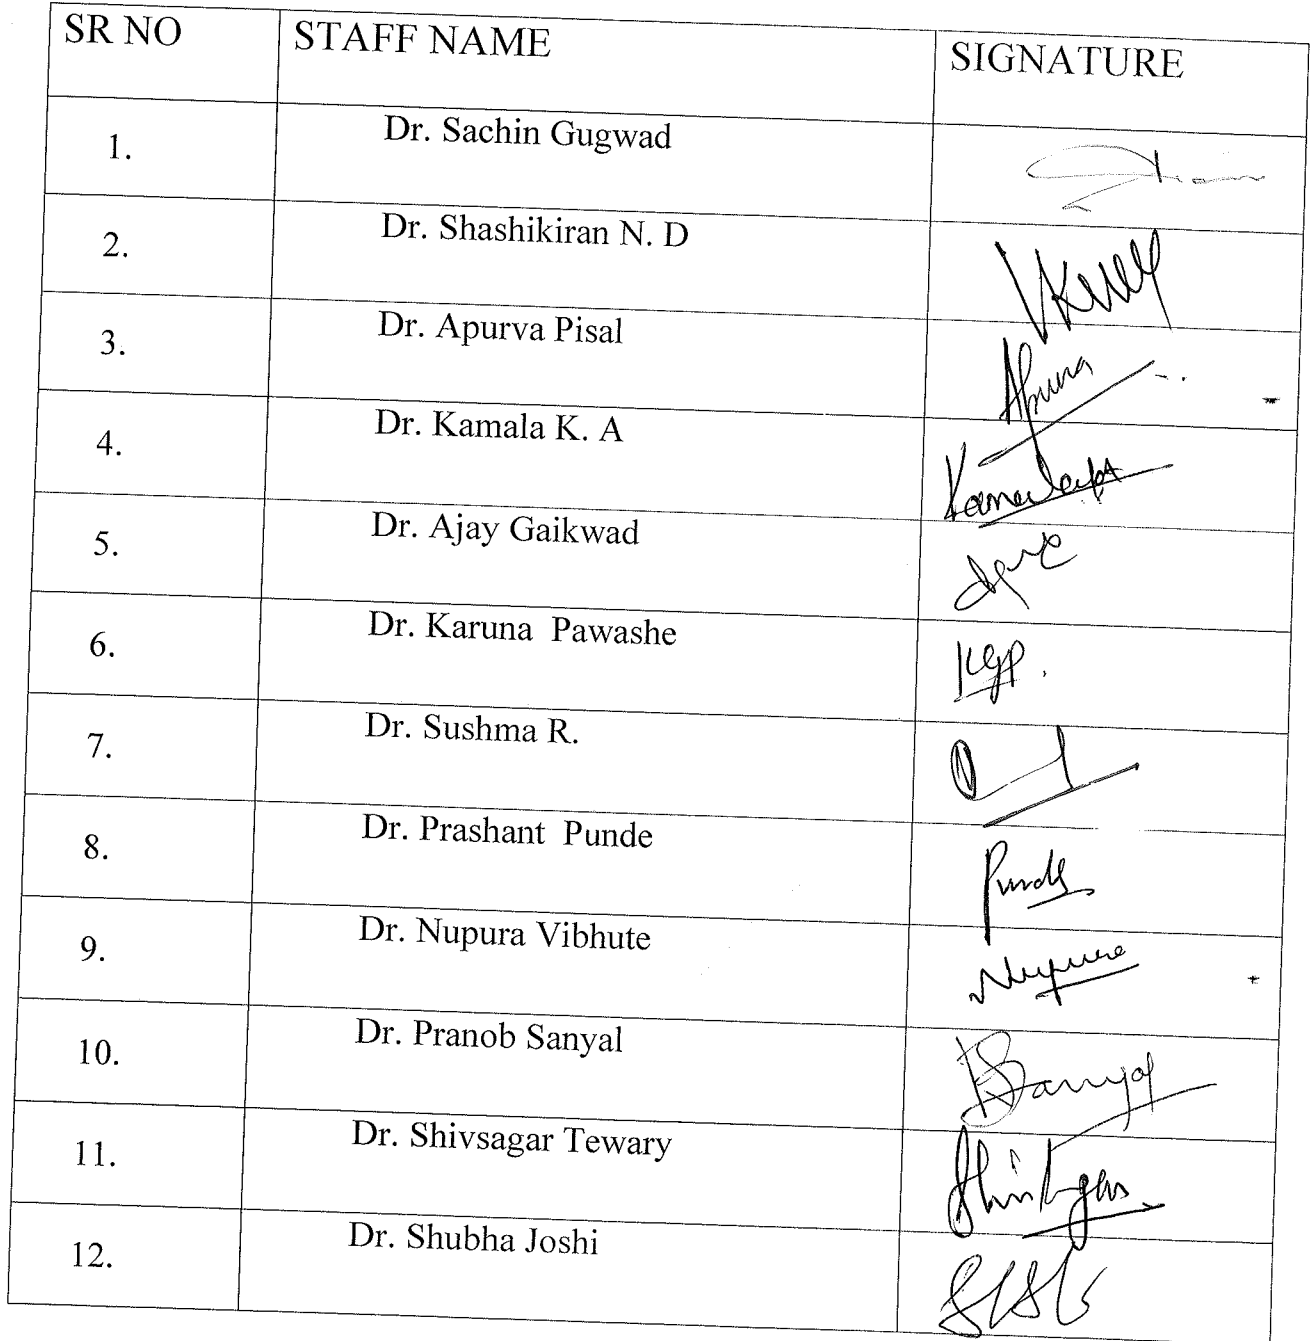 SR NO STAFF NAME SIGNATURE
1. Dr. Sachin Gugwad
2. Dr. Shashikiran N. D
3. Dr. Apurva Pisal
4. Dr. Kamala K. A
5. Dr. Ajay Gaikwad
6. Dr. Karuna Pawashe KGP.
7. Dr. Sushma R.
8. Dr. Prashant Punde Punde
9. Dr. Nupura Vibhute Nupura
10. Dr. Pranob Sanyal PSanyal
11. Dr. Shivsagar Tewary
12. Dr. Shubha Joshi